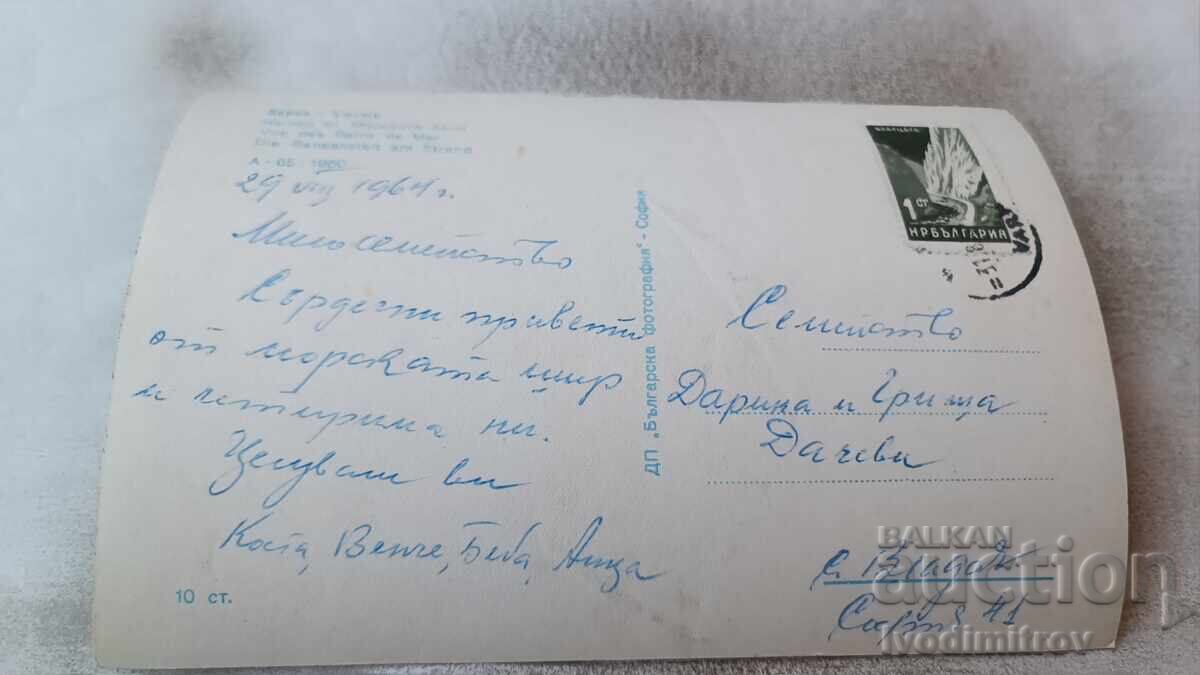 Варна - Varna
Vue des Bains de Mer
Die Badeanstalt am Strand
А-05 1960
29 VIII 1964 г.
Мило семейство
Сърдечни привети
от морската шир
и четирима ни.
Целуваме ви
Коста, Венче, Беба, Анза
10 ст.
ДП „Българска фотография" - София
1 СТ
НРБЪЛГАРИЯ
VAR
31.8
Семейство
Дарина и Гриша
Дачеви
с. Владая
София 41
BALKAN
auction
ivodimitrov